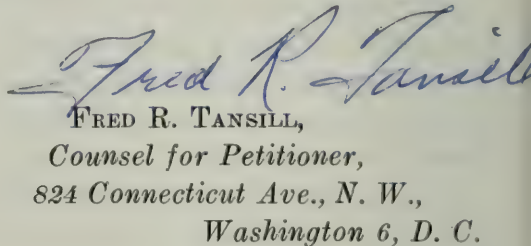 Fred R. Tansill
FRED R. TANSILL,
Counsel for Petitioner,
824 Connecticut Ave., N. W.,
Washington 6, D. C.